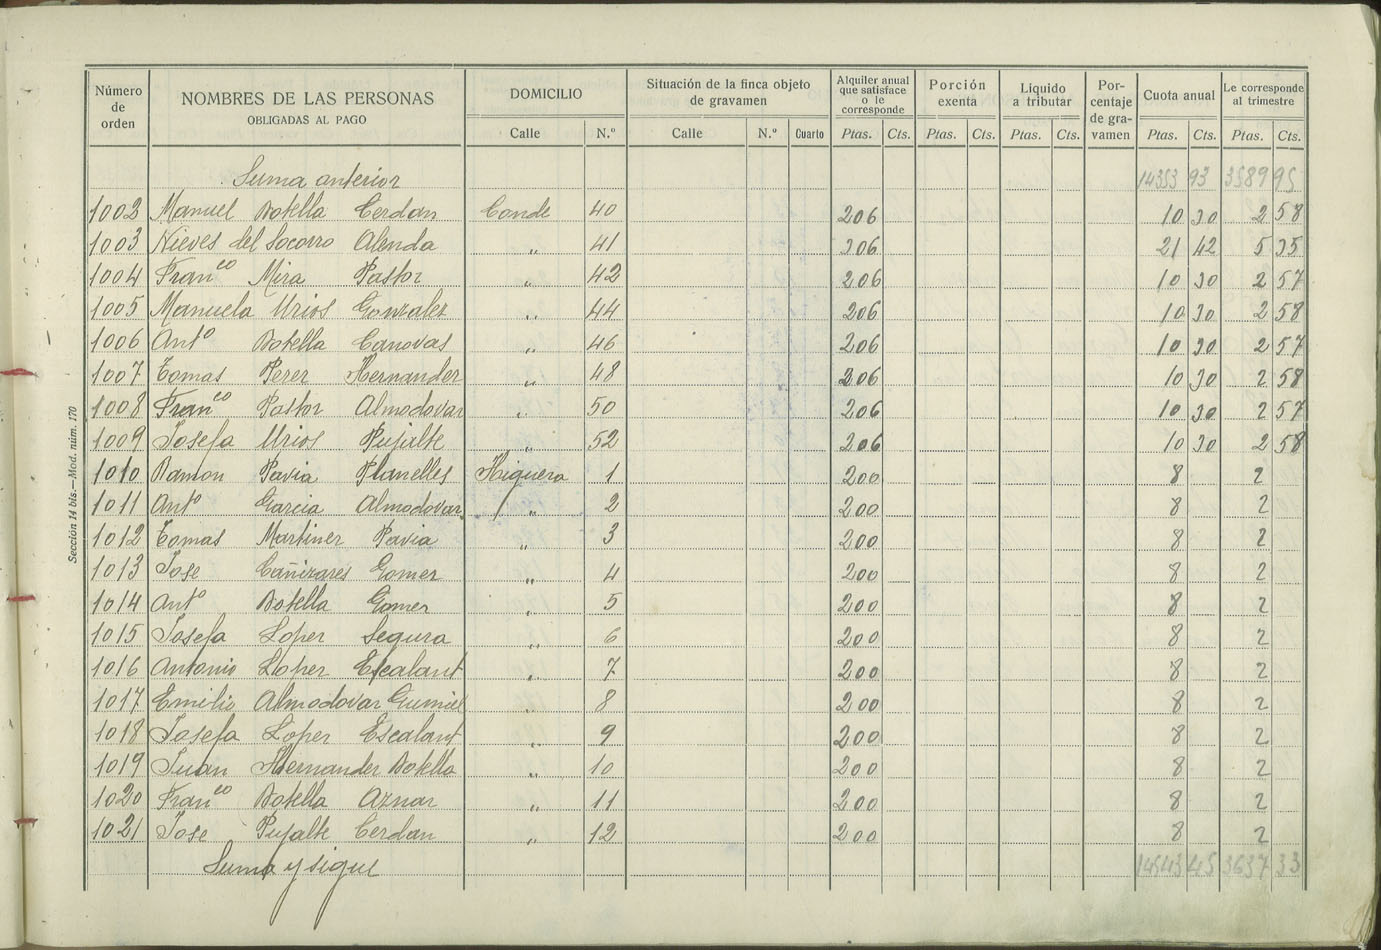 Número de orden | NOMBRES DE LAS PERSONAS OBLIGADAS AL PAGO | DOMICILIO | Situación de la finca objeto de gravamen | Alquiler anual que satisface o le corresponde | Porción exenta | Liquido a tributar | Por- centaje de gra- vamen | Cuota anual | Le corresponde al trimestre
Calle | N.º | Calle | N.º | Cuarto | Ptas. | Cts. | Ptas. | Cts. | Ptas. | Cts. | Ptas. | Cts. | Ptas. | Cts.
Suma anterior 14353 93 3589 95
1002 Manuel Botella Cerdan Conde 40 206 10 30 2 58
1003 Nieves del Socorro Alenda „ 41 306 21 42 5 35
1004 Franco Mira Pastor „ 42 206 10 30 2 57
1005 Manuela Urios Gonzalez „ 44 206 10 30 2 58
1006 Anto Botella Canovas „ 46 206 10 30 2 57
1007 Tomas Perez Hernandez „ 48 206 10 30 2 58
1008 Franco Pastor Almodovar „ 50 206 10 30 2 57
1009 Josefa Urios Pujalte „ 52 206 10 30 2 58
1010 Ramon Pavia Planelles Higuera 1 200 8 2
1011 Anto Garcia Almodovar „ 2 200 8 2
1012 Tomas Martinez Pavia „ 3 200 8 2
1013 Jose Cañizares Gomez „ 4 200 8 2
1014 Anto Botella Gomez „ 5 200 8 2
1015 Josefa Lopez Segura „ 6 200 8 2
1016 Antonio Lopez Escalant „ 7 200 8 2
1017 Emilio Almodovar Gumiel „ 8 200 8 2
1018 Josefa Lopez Escalant „ 9 200 8 2
1019 Juan Hernandez Botella „ 10 200 8 2
1020 Franco Botella Aznar „ 11 200 8 2
1021 Jose Pujalte Cerdan „ 12 200 8 2
Suma y sigue 14543 45 3637 33
Sección 14 bis.—Mod. núm. 170